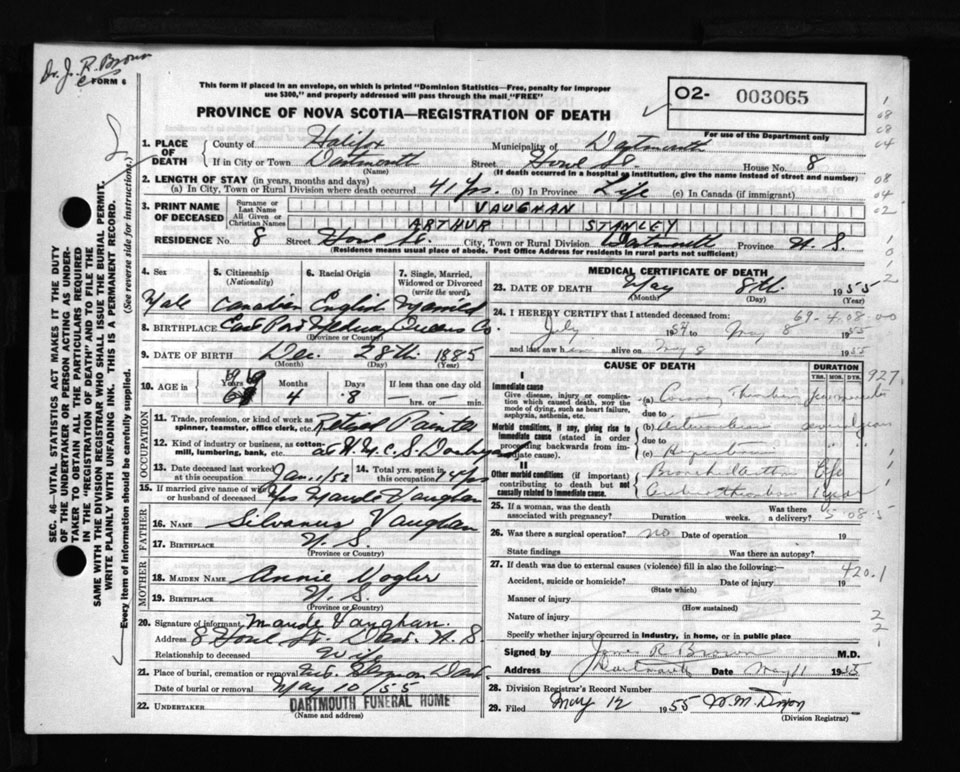 Dr. J. R. Brown
FORM 6
This form if placed in an envelope, on which is printed "Dominion Statistics—Free, penalty for improper
use $300," and properly addressed will pass through the mail "FREE"
PROVINCE OF NOVA SCOTIA—REGISTRATION OF DEATH
O2- 003065
For use of the Department only
1. PLACE OF DEATH
County of Halifax Municipality of Dartmouth
If in City or Town Dartmouth Street St. House No. 8
(Name) (If death occurred in a hospital or institution, give the name instead of street and number)
2. LENGTH OF STAY (in years, months and days)
(a) In City, Town or Rural Division where death occurred 41 yrs. (b) In Province Life (c) In Canada (if immigrant)
3. PRINT NAME OF DECEASED
Surname or Last Name VAUGHAN
All Given or Christian Names ARTHUR STANLEY
RESIDENCE No. 8 Street St. City, Town or Rural Division Dartmouth Province N.S.
(Residence means usual place of abode. Post Office Address for residents in rural parts not sufficient)
4. Sex 5. Citizenship (Nationality) 6. Racial Origin 7. Single, Married, Widowed or Divorced (write the word)
Male Canadian English Married
8. BIRTHPLACE East Port Medway Queens Co.
(Province or Country)
9. DATE OF BIRTH Dec. 28th 1885
(Month) (Day) (Year)
10. AGE in Years Months Days If less than one day old
69 4 8 hrs. or min.
OCCUPATION
11. Trade, profession, or kind of work as spinner, teamster, office clerk, etc. Retired Painter
12. Kind of industry or business, as cotton-mill, lumbering, bank, etc. at H.M.C.S. Dockyard
13. Date deceased last worked at this occupation Jan. 1/52 14. Total yrs. spent in this occupation 14 yrs
15. If married give name of wife or husband of deceased Mrs Maude Vaughan
FATHER
16. NAME Silvanus Vaughan
17. BIRTHPLACE N.S.
(Province or Country)
MOTHER
18. MAIDEN NAME Annie Vogler
19. BIRTHPLACE N.S.
(Province or Country)
20. Signature of informant Maude Vaughan.
Address 8 St. Dart. N.S.
Relationship to deceased Wife
21. Place of burial, cremation or removal Mt. Hermon Dart.
Date of burial or removal May 10/55
22. UNDERTAKER DARTMOUTH FUNERAL HOME
(Name and address)
MEDICAL CERTIFICATE OF DEATH
23. DATE OF DEATH May 8th. 1955
(Month) (Day) (Year)
24. I HEREBY CERTIFY that I attended deceased from: 69-4.08.00
July 1954 to May 8 1955
and last saw him alive on May 8 1955
CAUSE OF DEATH DURATION
YRS. MOS. DYS. 927.
I
Immediate cause
Give disease, injury or complication which caused death, not the mode of dying, such as heart failure, asphyxia, asthenia, etc.
(a) Coronary Thrombosis few minutes
due to
Morbid conditions, if any, giving rise to immediate cause (stated in order proceeding backwards from immediate cause).
(b) Arteriosclerosis several years
due to
(c)
II
Other morbid conditions (if important) contributing to death but not causally related to immediate cause.
Bronchial Asthma Life
25. If a woman, was the death associated with pregnancy? Duration weeks. Was there a delivery?
26. Was there a surgical operation? no Date of operation 19
State findings Was there an autopsy?
27. If death was due to external causes (violence) fill in also the following: 420.1
Accident, suicide or homicide? Date of injury 19
(State which)
Manner of injury
(How sustained)
Nature of injury
Specify whether injury occurred in industry, in home, or in public place
Signed by James R Brown M.D.
Address Dartmouth Date May 11 1955
28. Division Registrar's Record Number
29. Filed May 12 1955 W.M. Dixon
(Division Registrar)
SEC. 46—VITAL STATISTICS ACT MAKES IT THE DUTY
OF THE UNDERTAKER OR PERSON ACTING AS UNDERTAKER TO OBTAIN ALL THE PARTICULARS REQUIRED
IN THE "REGISTRATION OF DEATH" AND TO FILE THE
SAME WITH THE DIVISION REGISTRAR WHO SHALL ISSUE THE BURIAL PERMIT.
WRITE PLAINLY WITH UNFADING INK. THIS IS A PERMANENT RECORD.
Every item of information should be carefully supplied. (See reverse side for instructions.)